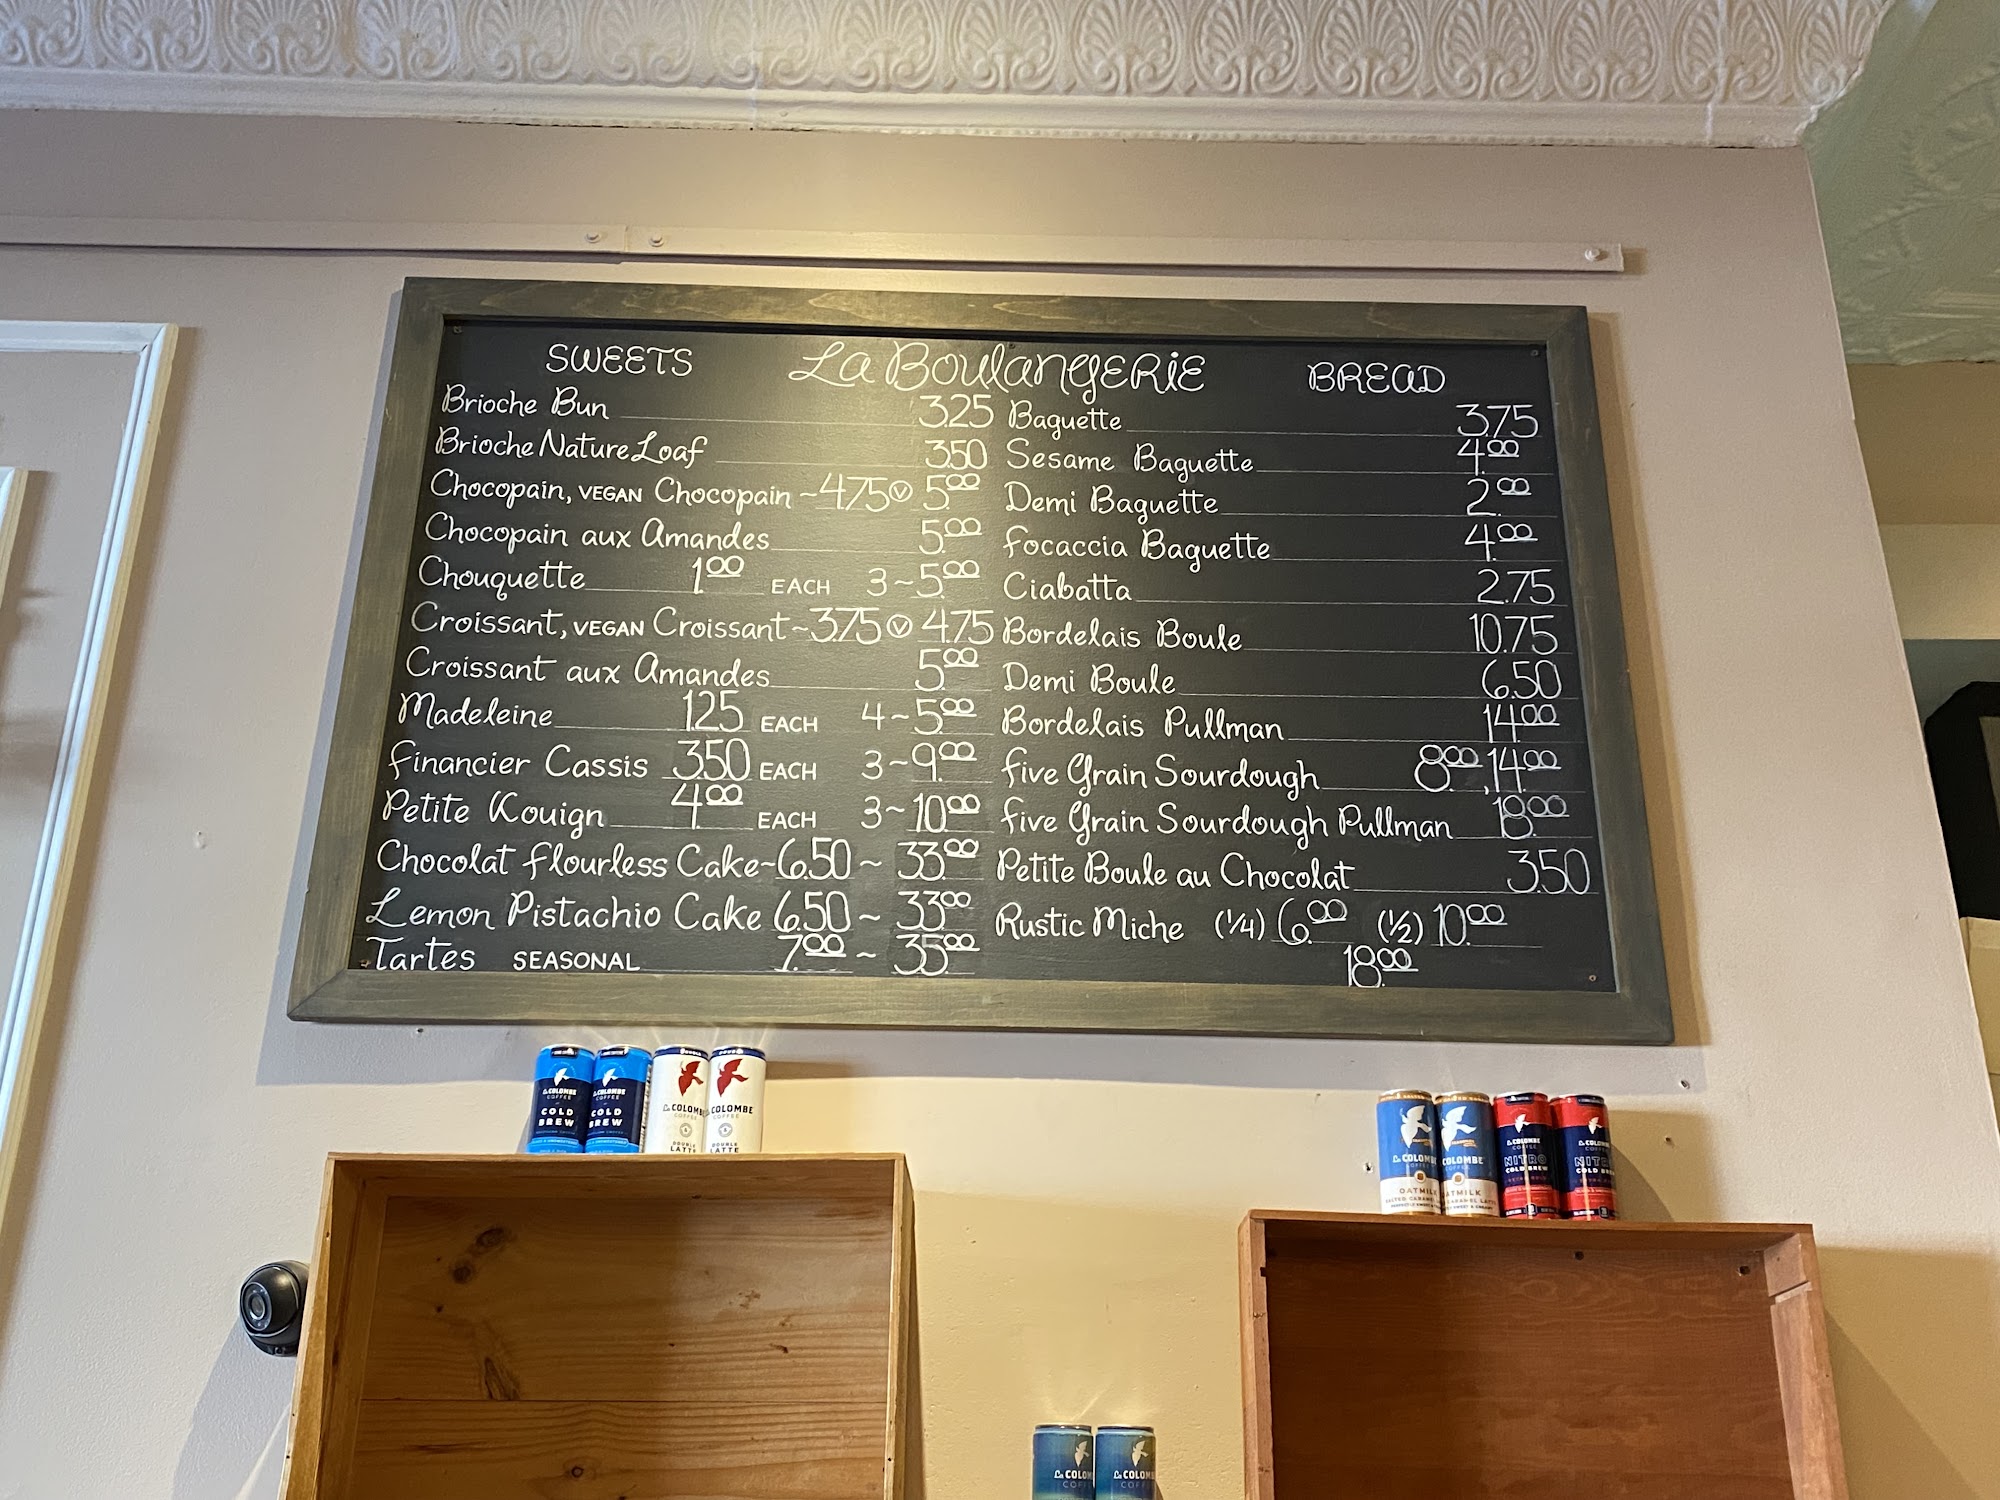 La Boulangerie
SWEETS
Brioche Bun 3.25
Brioche Nature Loaf 3.50
Chocopain, VEGAN Chocopain ~ 4.75 Ⓥ 5.00
Chocopain aux Amandes 5.00
Chouquette 1.00 EACH 3 ~ 5.00
Croissant, VEGAN Croissant ~ 3.75 Ⓥ 4.75
Croissant aux Amandes 5.00
Madeleine 1.25 EACH 4 ~ 5.00
Financier Cassis 3.50 EACH 3 ~ 9.00
Petite Kouign 4.00 EACH 3 ~ 10.00
Chocolat Flourless Cake ~ 6.50 ~ 33.00
Lemon Pistachio Cake 6.50 ~ 33.00
Tartes SEASONAL 7.00 ~ 35.00
BREAD
Baguette 3.75
Sesame Baguette 4.00
Demi Baguette 2.00
Focaccia Baguette 4.00
Ciabatta 2.75
Bordelais Boule 10.75
Demi Boule 6.50
Bordelais Pullman 14.00
Five Grain Sourdough 8.00, 14.00
Five Grain Sourdough Pullman 18.00
Petite Boule au Chocolat 3.50
Rustic Miche (1/4) 6.00 (1/2) 10.00
18.00
La COLOMBE
COFFEE
COLD
BREW
La COLOMBE
COFFEE
COLD
BREW
La COLOMBE
COFFEE
DOUBLE
LATTE
COLOMBE
COFFEE
DOUBLE
LATTE
La COLOMBE
OATMILK
COLOMBE
OATMILK
La COLOMBE
COFFEE
NITRO
COLD BREW
La COLOMBE
COFFEE
NITRO
COLD BREW
La COLOMBE
COFFEE
La COLOMBE
COFFEE